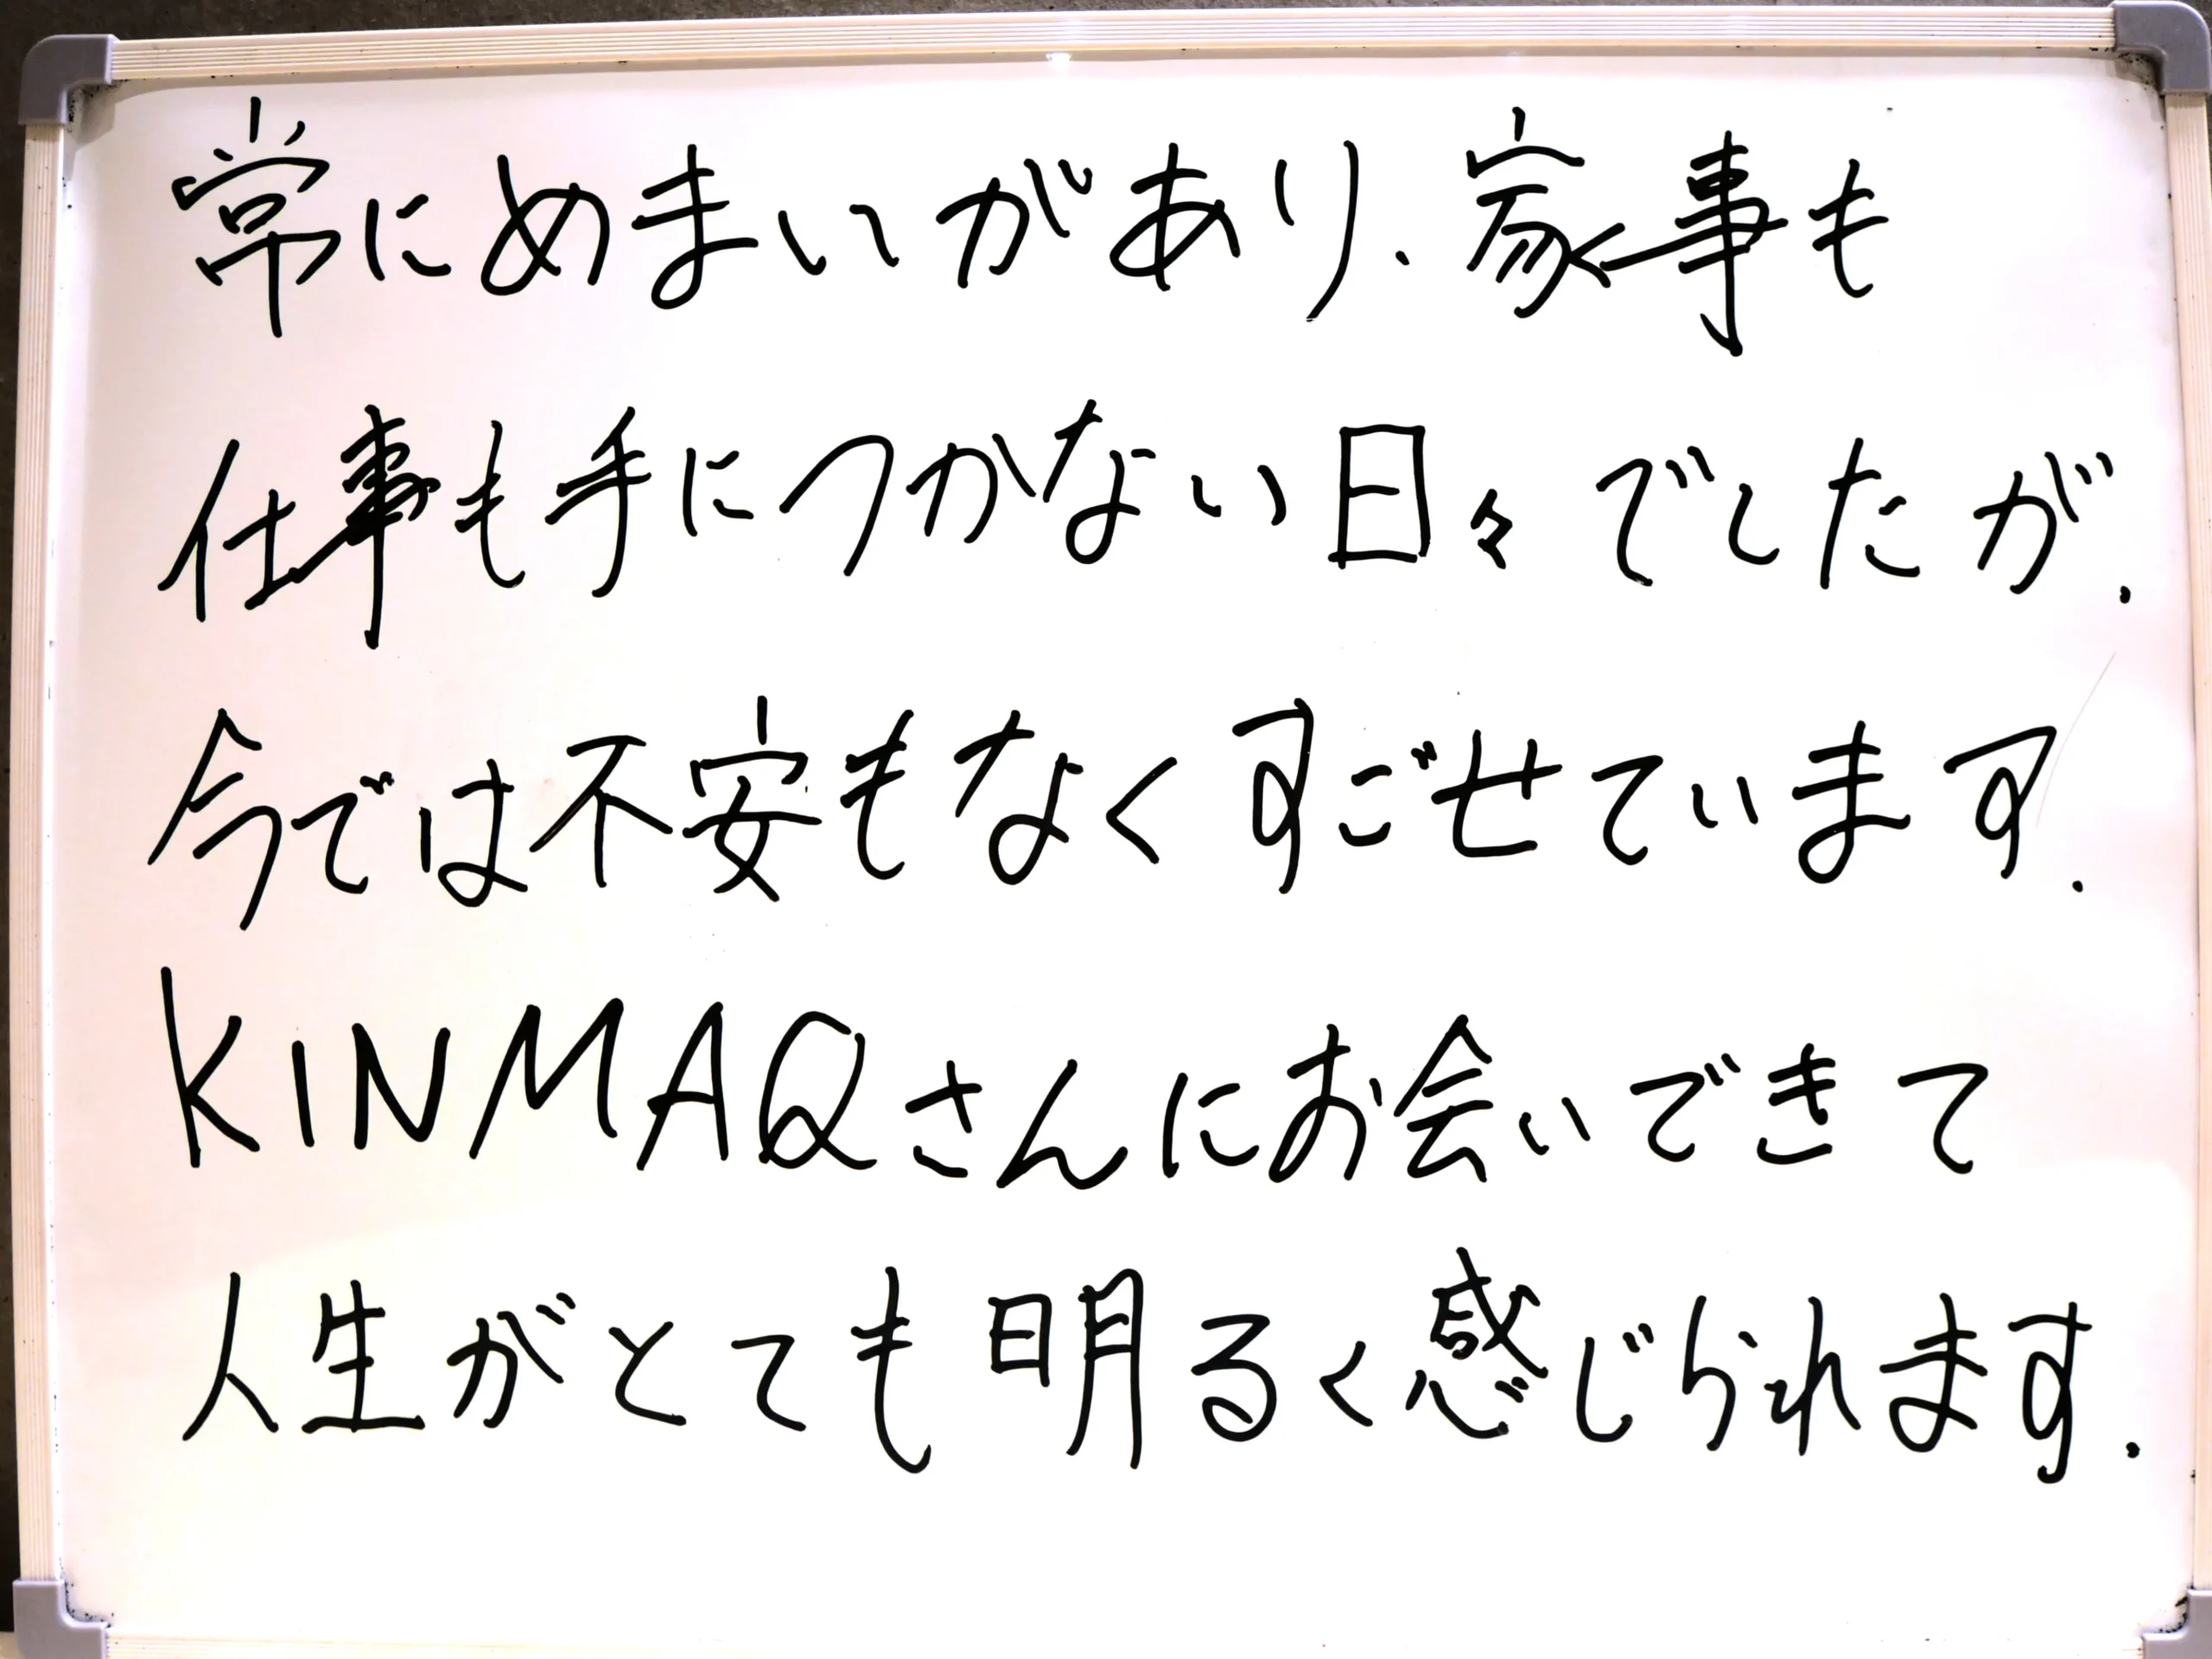 常にめまいがあり、家事も
仕事も手につかない日々でしたが、
今では不安もなくすごせています。
KINMAQさんにお会いできて
人生がとても明るく感じられます。